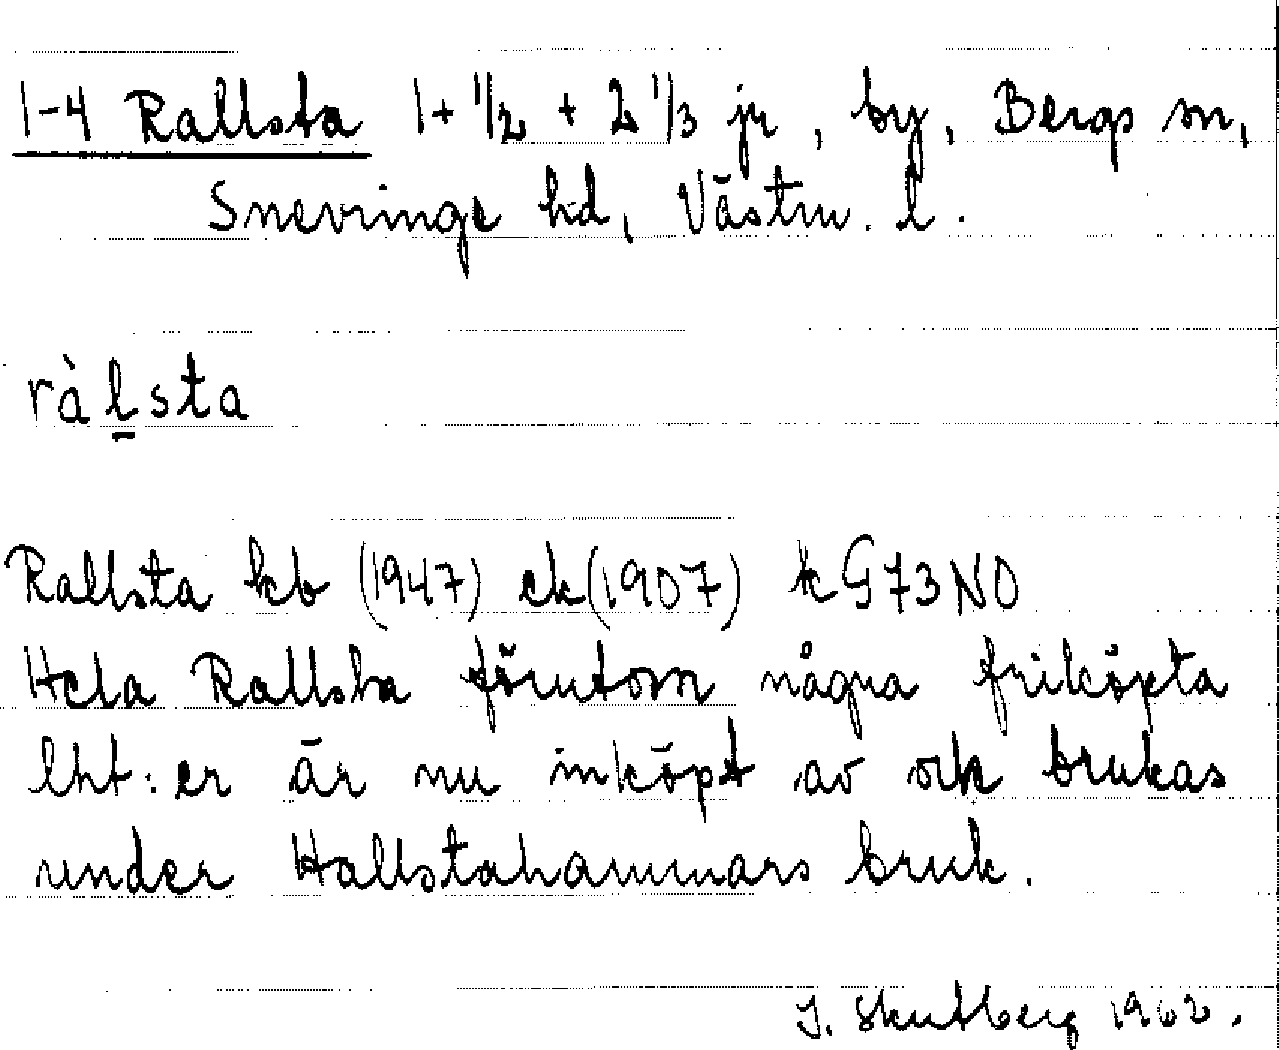 1-4 Rallsta 1+ 1/2 + 2 1/3 jr, by, Bergs sn,
Snevringe hd, Västm. l.
ràl̠sta
Rallsta kb (1947) ek (1907) kG73NO
Hela Rallsta förutom några friköpta
lht:er är nu inköpt av och brukas
under Hallstahammars bruk.
J. Skutberg 1962.